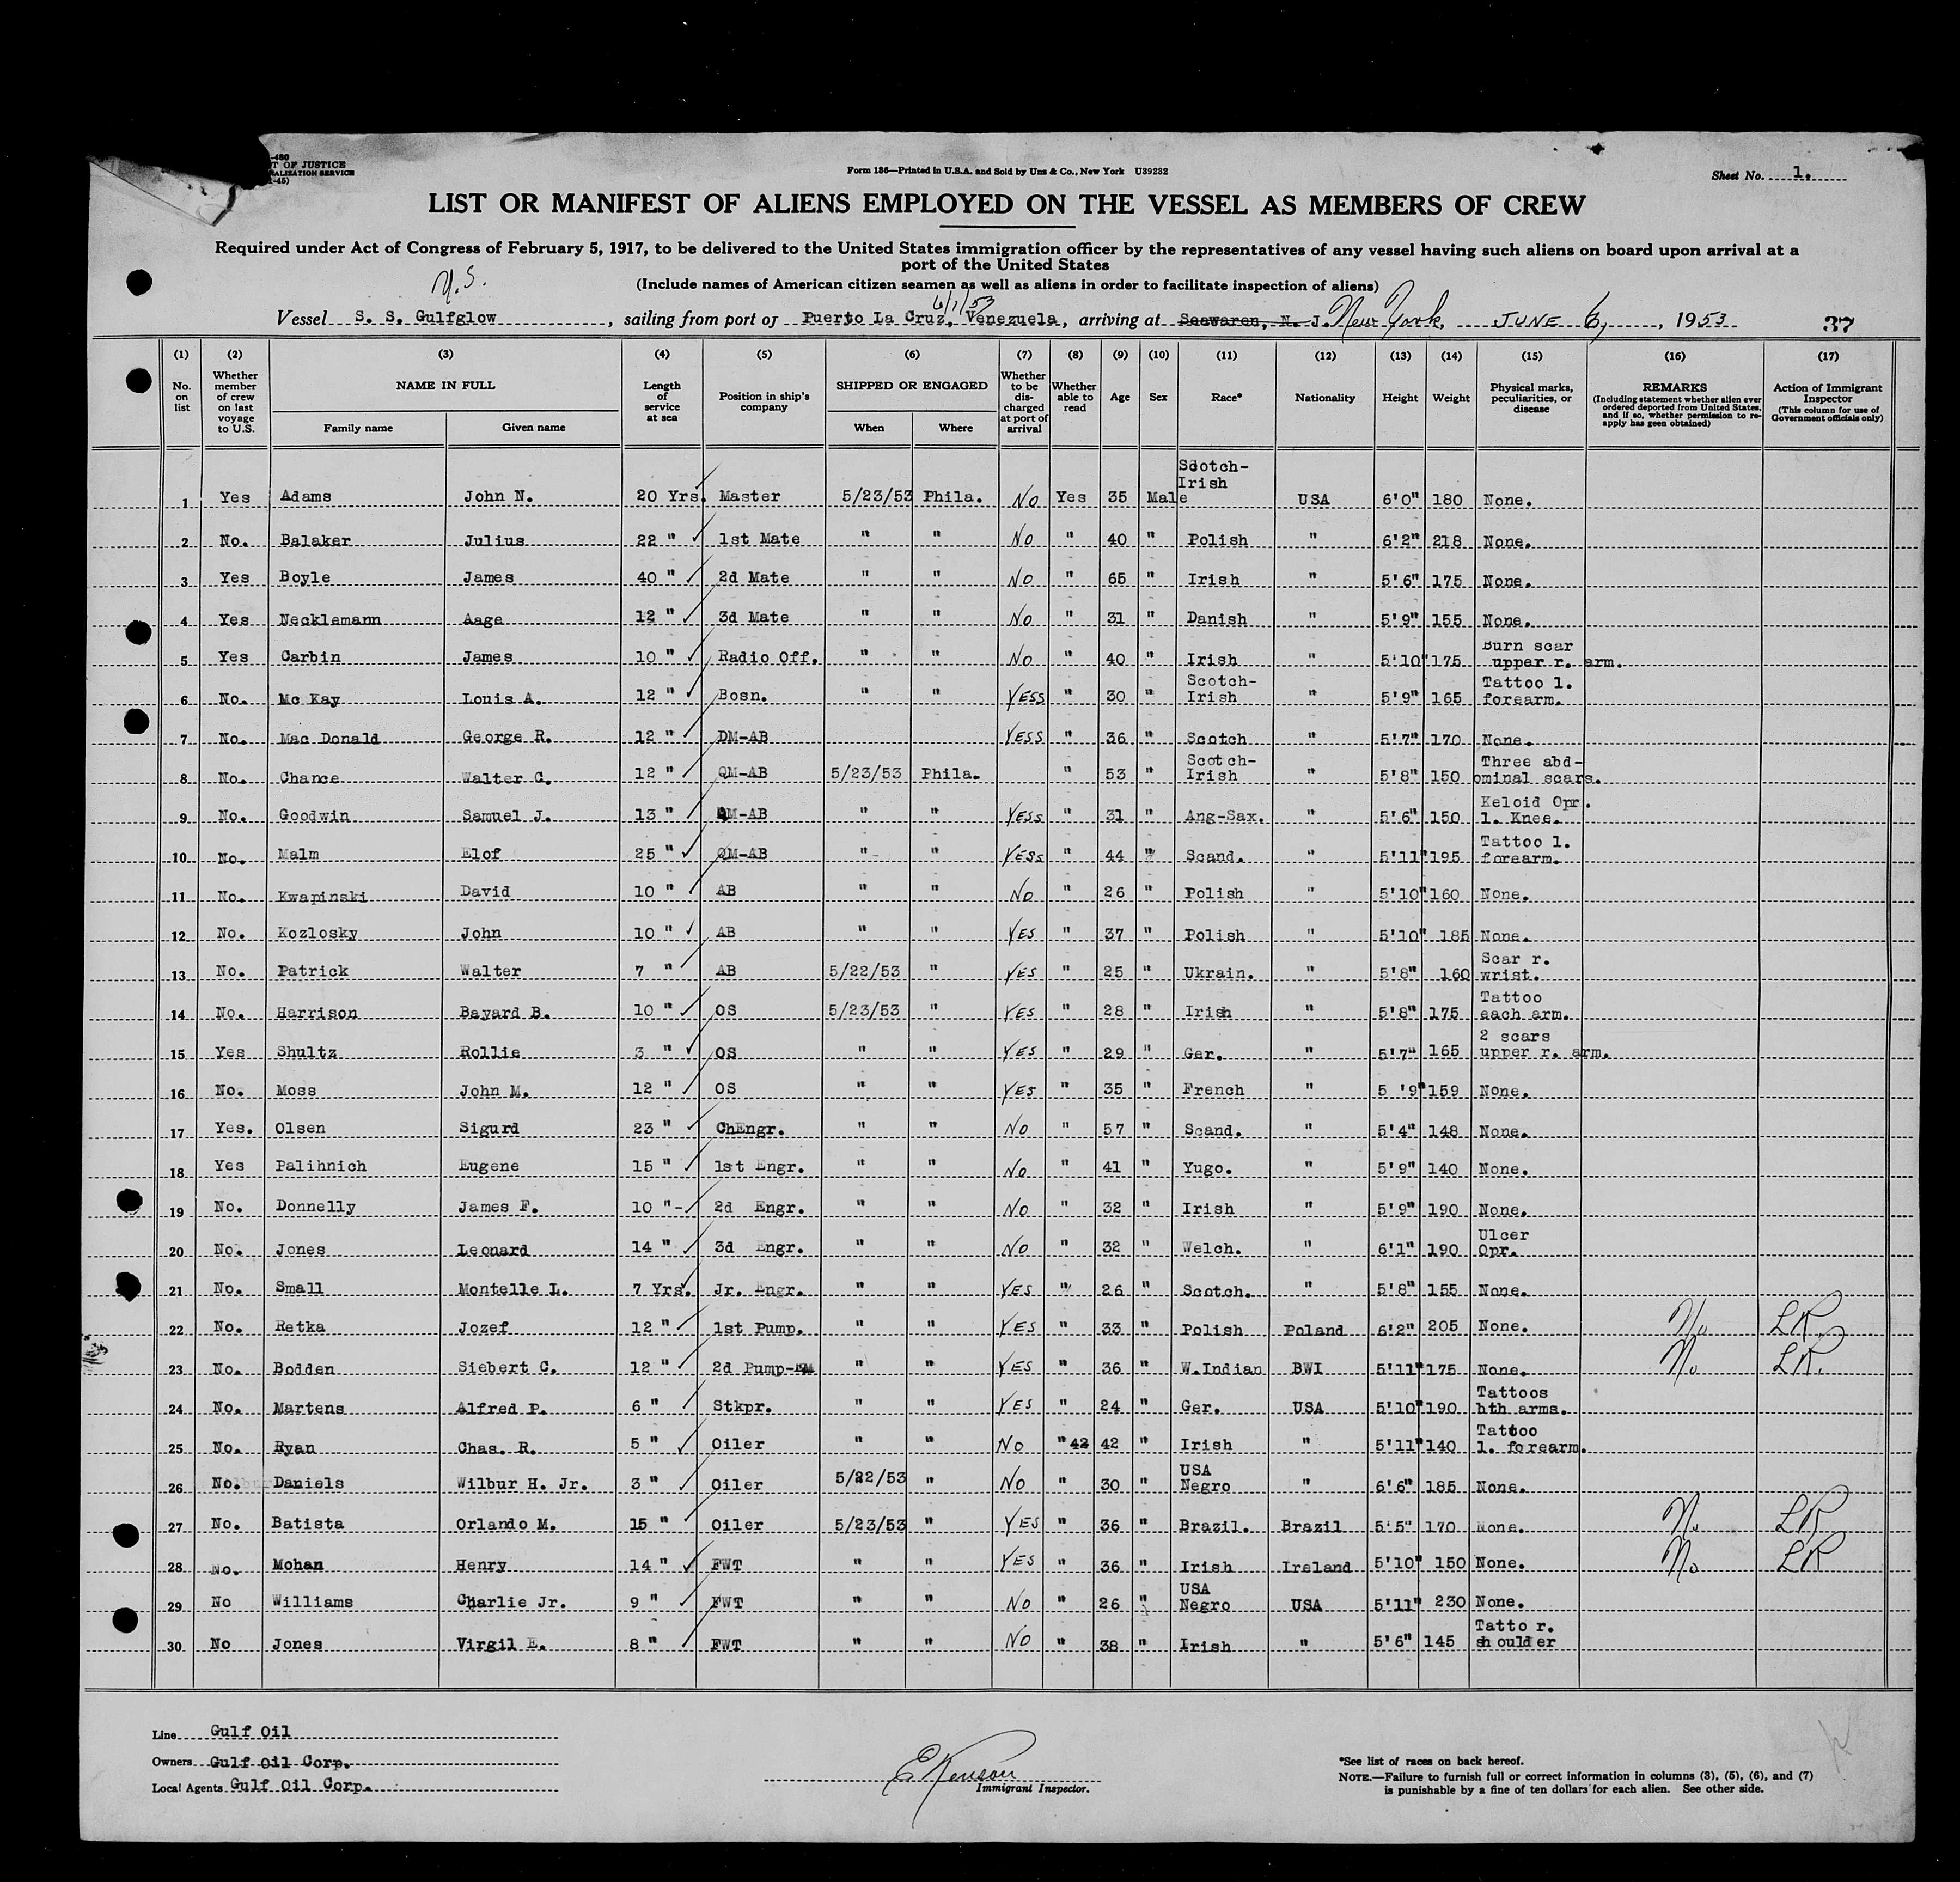 -480
T OF JUSTICE
ALIZATION SERVICE
-45)
Form 136—Printed in U.S.A. and Sold by Unz & Co., New York U39232
Sheet No. 1.
LIST OR MANIFEST OF ALIENS EMPLOYED ON THE VESSEL AS MEMBERS OF CREW
Required under Act of Congress of February 5, 1917, to be delivered to the United States immigration officer by the representatives of any vessel having such aliens on board upon arrival at a
port of the United States
(Include names of American citizen seamen as well as aliens in order to facilitate inspection of aliens)
U.S.
6/1/53
Vessel S. S. Gulfglow, sailing from port of Puerto La Cruz, Venezuela, arriving at Seewaren, N. J. New York, JUNE 6, 1953
37
(1) (2) (3) (4) (5) (6) (7) (8) (9) (10) (11) (12) (13) (14) (15) (16) (17)
No. on list
Whether member of crew on last voyage to U.S.
NAME IN FULL
Family name
Given name
Length of service at sea
Position in ship's company
SHIPPED OR ENGAGED
When
Where
Whether to be discharged at port of arrival
Whether able to read
Age
Sex
Race*
Nationality
Height
Weight
Physical marks, peculiarities, or disease
REMARKS
(Including statement whether alien ever ordered deported from United States, and if so, whether permission to re-apply has geen obtained)
Action of Immigrant Inspector
(This column for use of Government officials only)
1 Yes Adams John N. 20 Yrs. Master 5/23/53 Phila. No Yes 35 Male Scotch-Irish USA 6'0" 180 None.
2 No. Balaker Julius 22 " 1st Mate " " No " 40 " Polish " 6'2" 218 None.
3 Yes Boyle James 40 " 2d Mate " " No " 65 " Irish " 5'6" 175 None.
4 Yes Necklemann Aage 12 " 3d Mate " " No " 31 " Danish " 5'9" 155 None.
5 Yes Carbin James 10 " Radio Off. " " No " 40 " Irish " 5'10" 175 Burn scar upper r. arm.
6 No. Mc Kay Louis A. 12 " Bosn. " " YESS " 30 " Scotch-Irish " 5'9" 165 Tattoo l. forearm.
7 No. Mac Donald George R. 12 " DM-AB YESS " 36 " Scotch " 5'7" 170 None.
8 No. Chance Walter C. 12 " QM-AB 5/23/53 Phila. " 53 " Scotch-Irish " 5'8" 150 Three abd-ominal scars.
9 No. Goodwin Samuel J. 13 " QM-AB " " YESS " 31 " Ang-Sax. " 5'6" 150 Keloid Opr. l. Knee.
10 No. Malm Elof 25 " QM-AB " " YESS " 44 " Scand. " 5'11" 195 Tattoo l. forearm.
11 No. Kwapinski David 10 " AB " " No " 26 " Polish " 5'10" 160 None.
12 No. Kozlosky John 10 " AB " " YES " 37 " Polish " 5'10" 185 None.
13 No. Patrick Walter 7 " AB 5/22/53 " YES " 25 " Ukrain. " 5'8" 160 Scar r. wrist.
14 No. Harrison Bayard B. 10 " OS 5/23/53 " YES " 28 " Irish " 5'8" 175 Tattoo each arm.
15 Yes Shultz Rollie 3 " OS " " YES " 29 " Ger. " 5'7" 165 2 scars upper r. arm.
16 No. Moss John M. 12 " OS " " YES " 35 " French " 5 '9" 159 None.
17 Yes. Olsen Sigurd 23 " ChEngr. " " No " 57 " Scand. " 5'4" 148 None.
18 Yes Palihnich Eugene 15 " 1st Engr. " " No " 41 " Yugo. " 5'9" 140 None.
19 No. Donnelly James F. 10 " 2d Engr. " " No " 32 " Irish " 5'9" 190 None.
20 No. Jones Leonard 14 " 3d Engr. " " No " 32 " Welch. " 6'1" 190 Ulcer Opr.
21 No. Small Montelle L. 7 Yrs. Jr. Engr. " " YES " 26 " Scotch. " 5'8" 155 None.
22 No. Retka Jozef 12 " 1st Pump. " " YES " 33 " Polish Poland 6'2" 205 None. No LR.
23 No. Bodden Siebert C. 12 " 2d Pump- " " YES " 36 " W.Indian BWI 5'11" 175 None. No LR.
24 No. Martens Alfred P. 6 " Stkpr. " " YES " 24 " Ger. USA 5'10" 190 Tattoos bth arms.
25 No. Ryan Chas. R. 5 " Oiler " " No " 42 42 " Irish " 5'11" 140 Tattoo l. forearm.
26 No. Daniels Wilbur H. Jr. 3 " Oiler 5/22/53 " No " 30 " USA Negro " 6'6" 185 None.
27 No. Batista Orlando M. 15 " Oiler 5/23/53 " YES " 36 " Brazil. Brazil 5'5" 170 None. No LR
28 No. Mohan Henry 14 " FWT " " YES " 36 " Irish Ireland 5'10" 150 None. No LR
29 No Williams Charlie Jr. 9 " FWT " " No " 26 " USA Negro USA 5'11" 230 None.
30 No Jones Virgil E. 8 " FWT " " No " 38 " Irish " 5'6" 145 Tatto r. shoulder
Line Gulf Oil
Owners Gulf Oil Corp.
Local Agents Gulf Oil Corp.
Immigrant Inspector.
*See list of races on back hereof.
NOTE.—Failure to furnish full or correct information in columns (3), (5), (6), and (7)
is punishable by a fine of ten dollars for each alien. See other side.